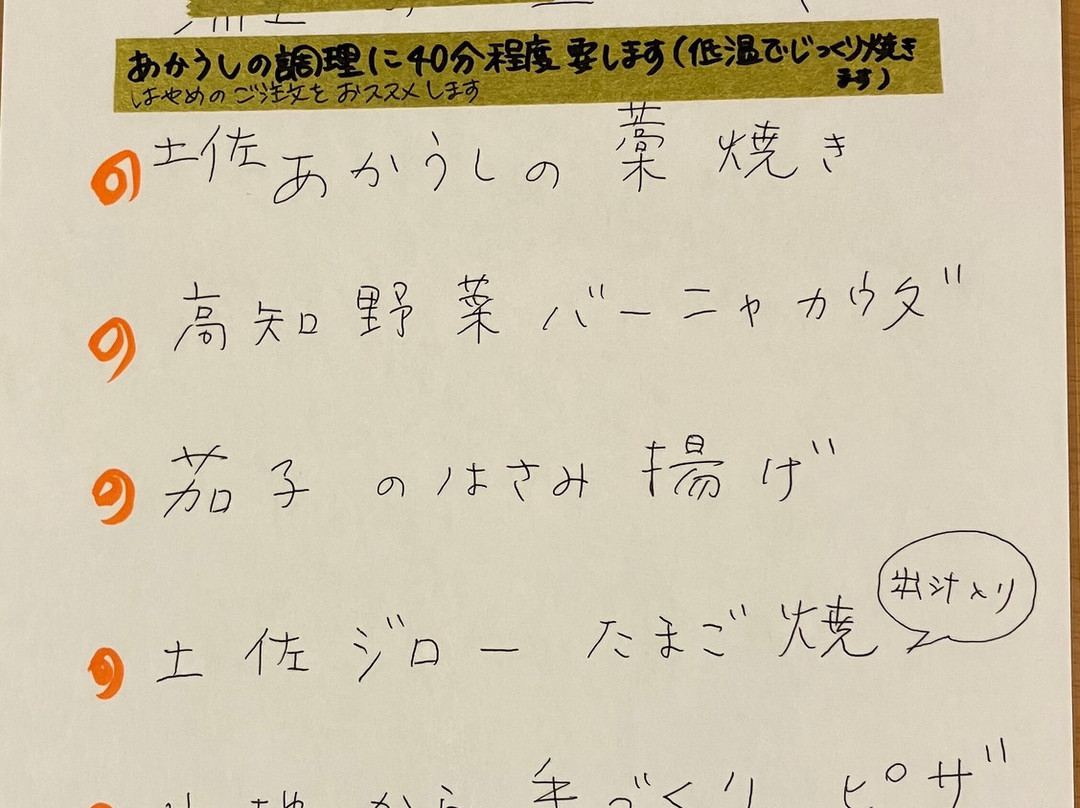 あかうしの調理に40分程度要します(低温でじっくり焼き
ます)
はやめのご注文をおススメします
土佐あかうしの藁焼き
高知野菜バーニャカウダ
茄子のはさみ揚げ
出汁入り
土佐ジローたまご焼
から手づくりピザ